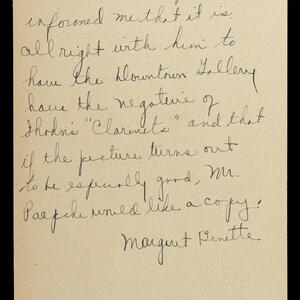 informed me that it is
all right with him to
have the Downtown Gallery
have the negative of
"Clarinets" and that
if the picture turns out
to be especially good, Mr.
Paepcke would like a copy.
Margaret